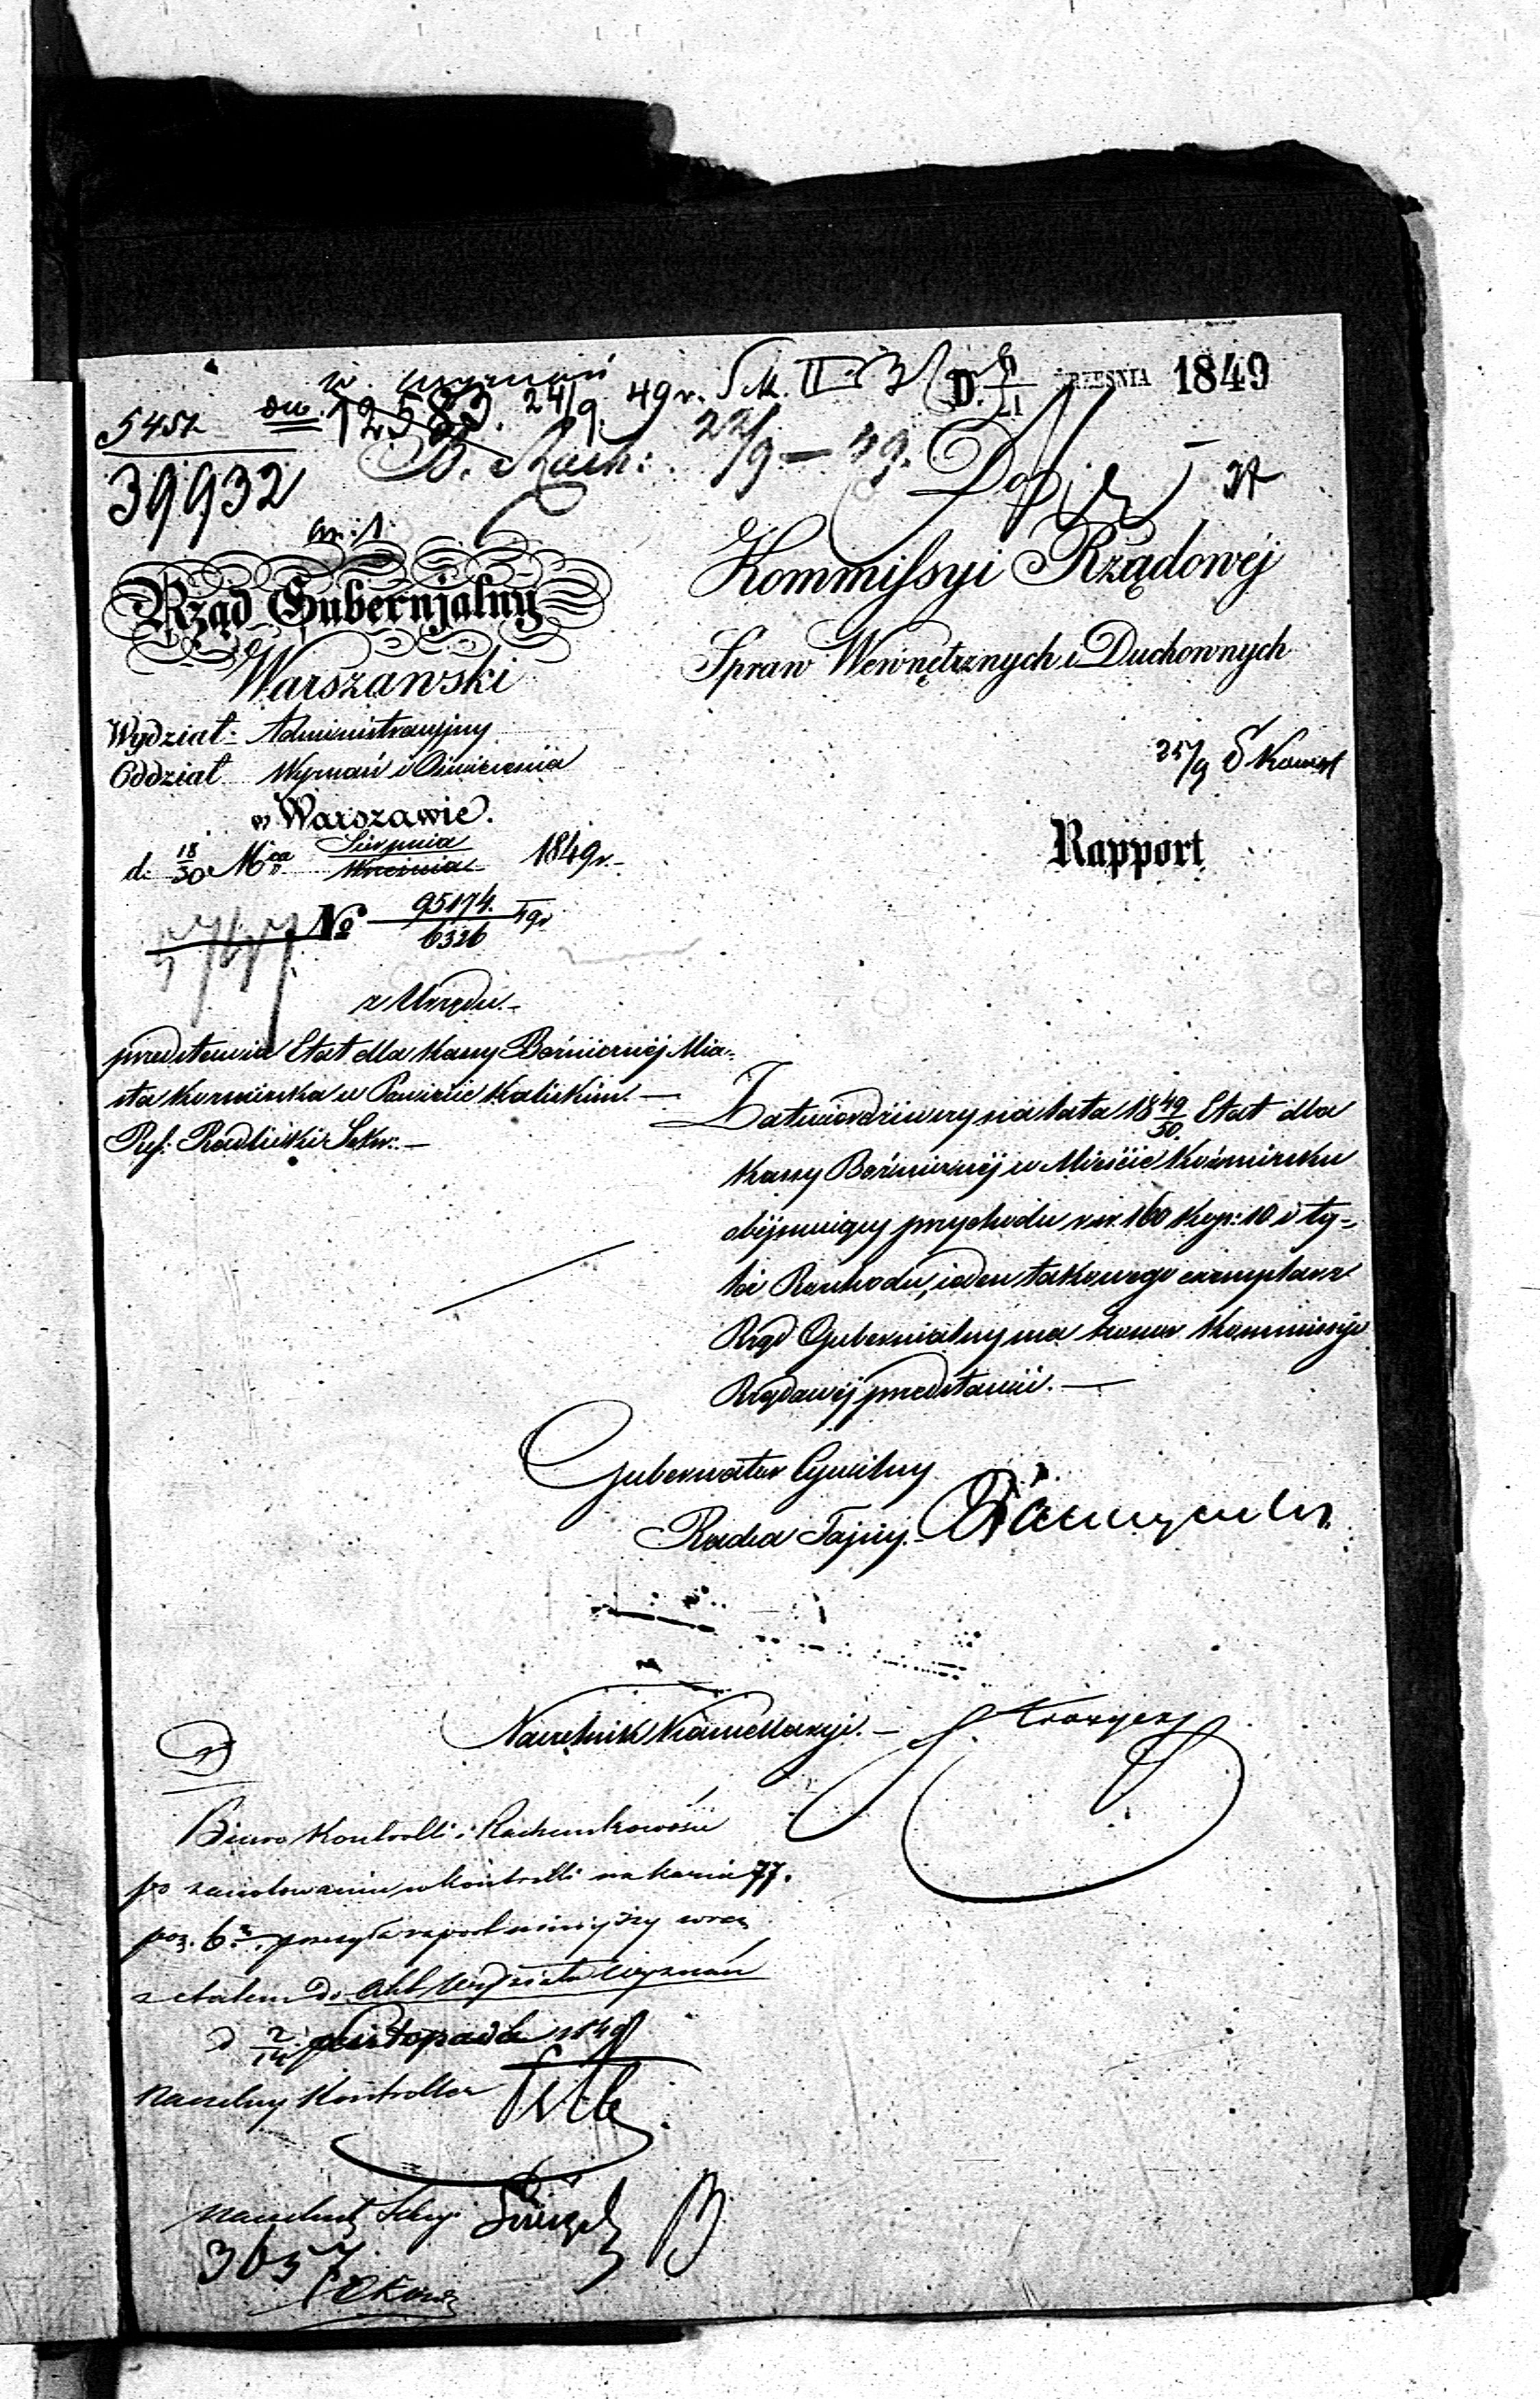 w. wyznań
5452 12583. 24/9 49 r. II D. 9/21 WRZEŚNIA 1849
39932 B. Rach: 22/9 – 49.
Rząd Gubernjalny
Warszawski
Wydział Administracyjny
Oddział Wyznań i Oświecenia
w Warszawie.
d. 18/30 Mca Sierpnia / Września 1849 r.
№ 95174./6326 49r
z Urzędu.
przedstawia Etat dla Kassy Bożniczej Mia-
sta Koźminka w Powiecie Kaliskim. —
Ref: Radliński Sekr: —
Kommissyi Rządowéj
Spraw Wewnętrznych i Duchownych
25/9
Rapport
Zatwierdziwszy na lata 1849/50. Etat dla
Kassy Bożniczéj w Mieście Koźminku
obéjmuiący przychodu rsr. 160 kop: 10 i ty-
leż Rozchodu, ieden takowego exemplarz
Rząd Gubernialny ma honor Kommissyi
Rządowéj przedstawić. —
Gubernator Cywilny
Radca Tajny.
Naczelnik Kancellaryi. —
Biuro Kontrolli i Rachunkowości
po zanotowaniu w kontrolli na karcie 77.
poz. 6. przesyła rapport niniejszy wraz
z etatem do Akt Wydziału Wyznań
d 2/14 Listopada 1849
Naczelny Kontroller
Naczelnik Sekcyi
3657